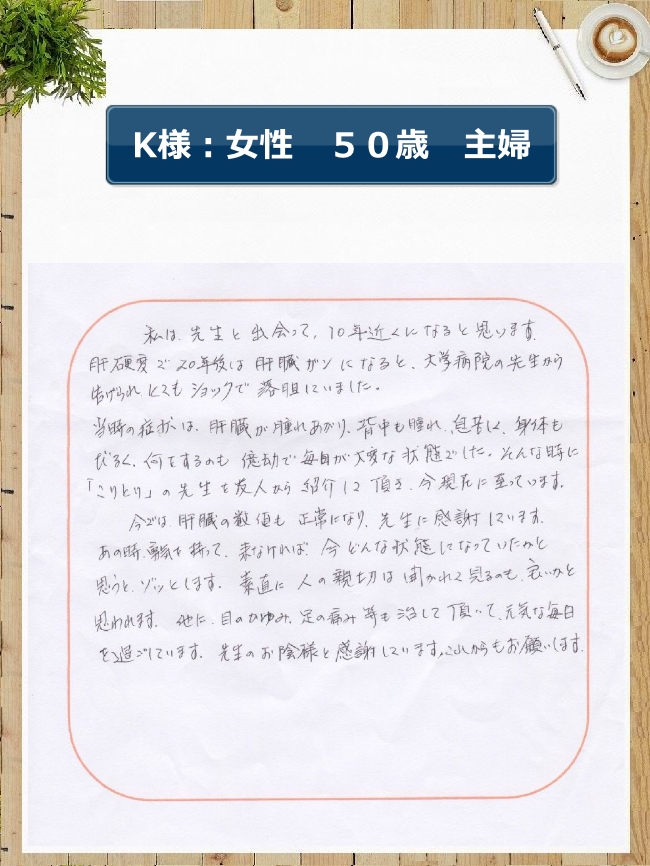 K様：女性　５０歳　主婦
私は、先生と出会って、10年近くになると思います。
肝硬変で20年後は肝臓ガンになると、大学病院の先生から
告げられとてもショックで落胆していました。
当時の症状は、肝臓が腫れあがり、背中も腫れ、息苦しく、身体も
だるく、何をするのも億劫で毎日が大変な状態でした。そんな時に
「こりとり」の先生を友人から紹介して頂き、今現在に至っています。
今では、肝臓の数値も正常になり、先生に感謝しています。
あの時、勇気を持って、来なければ、今どんな状態になっていたかと
思うと、ゾッとします。素直に人の親切は聞かれて見るのも、良いかと
思われます。他に、目のかゆみ、足の痛み等も治して頂いて、元気な毎日
を過ごしています。先生のお陰様と感謝しています。これからもお願いします。